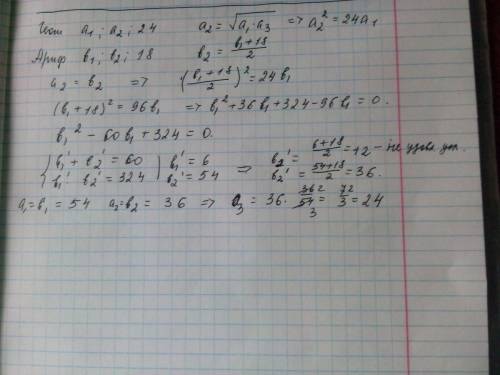 Геом a₁; a₂; 24 a₂ = √(a₁·a₃) => a₂² = 24a₁
Ариф b₁; b₂; 18 b₂ = (b₁+18)/2
a₂ = b₂ => ((b₁+18)/2)² = 24b₁
(b₁+18)² = 96b₁ => b₁² + 36b₁ + 324 - 96b₁ = 0.
b₁² - 60b₁ + 324 = 0.
{ b₁' + b₂' = 60 } b₁' = 6 => b₂' = (6+18)/2 = 12 - не удов. усл.
{ b₁' · b₂' = 324 } b₂' = 54 b₂' = (54+18)/2 = 36.
a₁ = b₁ = 54 a₂ = b₂ = 36 => a₃ = 36 · 36 2/54 3 = 72/3 = 24